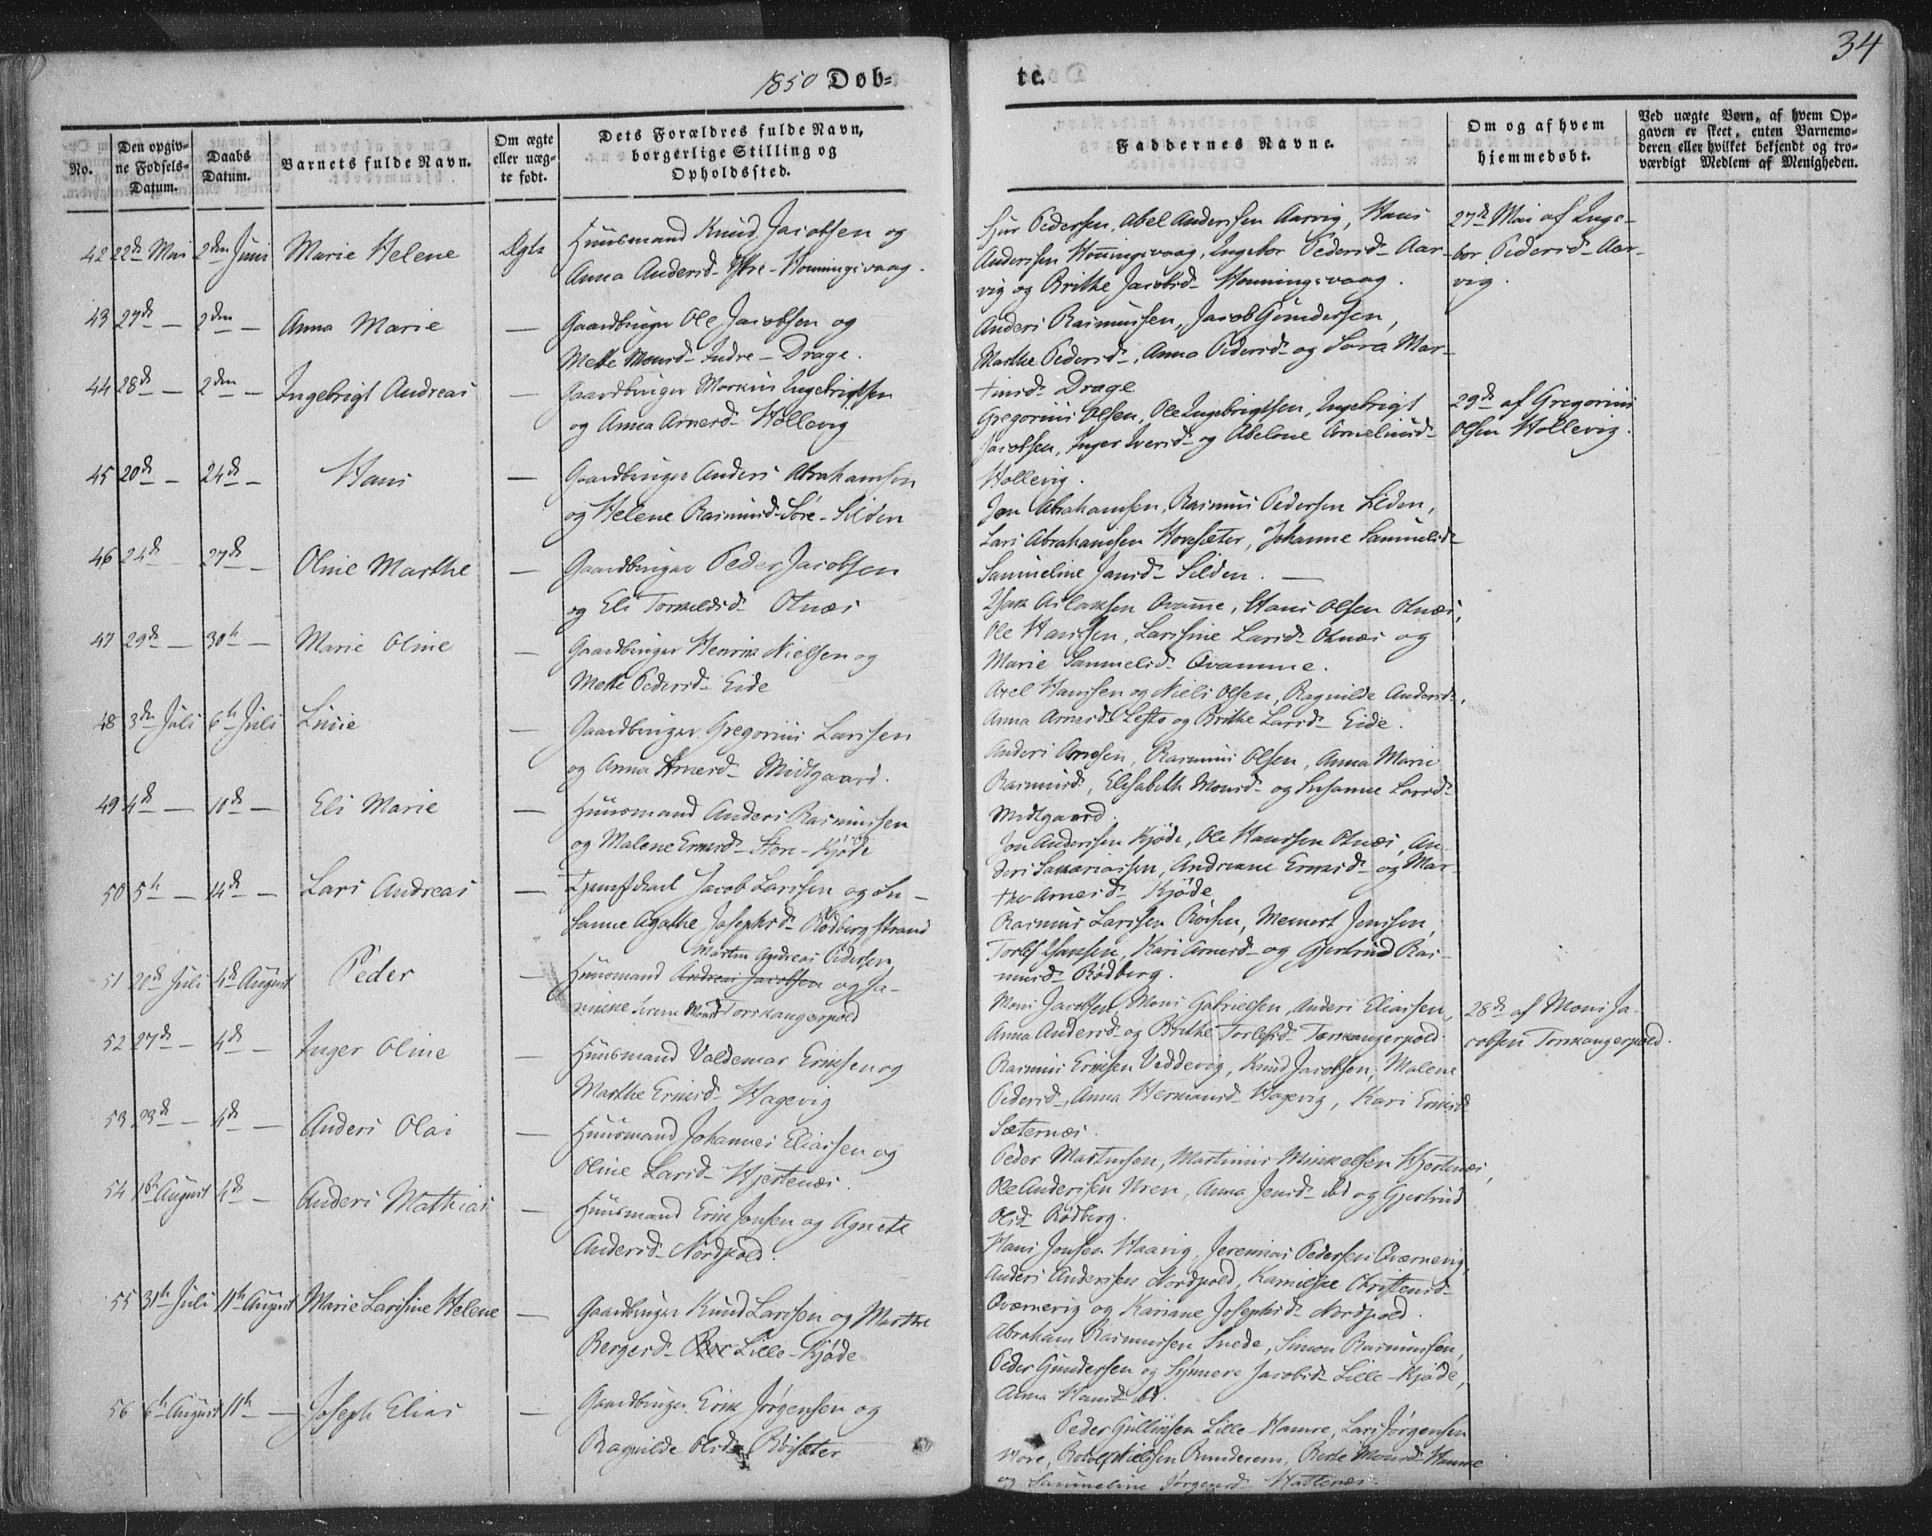 34
1850 Døb-
te.
No.
Den opgiv-
ne Fødsels-
Datum.
Daabs
Datum.
Barnets fulde Navn.
Om ægte
eller uæg-
te født.
Dets Forældres fulde Navn,
borgerlige Stilling og
Opholdssted.
Faddernes Navne.
Om og af hvem
hjemmedøbt.
Ved uægte Børn, af hvem Op-
gaven er skeet, enten Barnemo-
deren eller hvilket bekjendt og tro-
værdigt Medlem af Menigheden.
42 22de Mai 2den Juni Marie Helene Ægte
Huusmand Knud Jacobsen og
Anna Andersd- Ytre-Honningsvaag.
Pedersen, Abel Andersen Aarvig, Hans
Andersen Honningsvaag, Ingebor Pedersd- Aar-
vig og Brithe Jacobsd- Honningsvaag.
27de Mai af Inge-
bor Pedersd- Aar-
vig.
43 27de — 2den — Anna Marie —
Gaardbruger Ole Jacobsen og
Mette Monsd- Indre-Drage.
Anders Rasmussen, Jacob Gundersen,
Marthe Pedersd-, Anna Pedersd- og Sara Mar-
tinsd- Drage
44 28de — 2den — Ingebrigt Andreas —
Gaardbruger Markus Ingebrigtsen
og Anna Arnesd- Hollevig
Gregorius Olsen, Ole Ingebrigtsen, Ingebrigt
Jacobsen, Inger Iversd- og Abelone
Hollevig.
29de af Gregorius
Olsen Hollevig.
45 20de — 24de — Hans —
Gaardbruger Anders Abrahamsen
og Helene Rasmusd- Søre-Silden
Jon Abrahamsen, Rasmus Pedersen Silden,
Lars Abrahamsen Hovesæter, Johanne Samuelsd-
Samueline Jansd- Silden. —
46 24de 27de — Oline Marthe —
Gaardbruger Peder Jacobsen
og Eli Torkildsd- Otnæs
Isak Aslaksen Qvamme, Hans Olsen Otnæs,
Ole Hanssen, Larsine Larsd- Otnæs og
Marie Samuelsd- Qvamme.
47 29de — 30te — Marie Oline —
Gaardbruger Henrik Nielsen og
Mette Pedersd- Eide
Axel Hanssen og Niels Olsen, Ragnilde Andersd-
Anna Arnesd- Lefto og Brithe Larsd- Eide.
48 3den Juli 6te Juli Lusie —
Gaardbruger Gregorius Larssen
og Anna Arnesd- Midtgaard.
Anders Arnesen, Rasmus Olsen, Anna Marie
Rasmusd-, Elisabeth Monsd- og Susanne Larsd-
Midtgaard.
49 4de — 10de — Eli Marie —
Huusmand Anders Rasmussen
og Malene Ernsd- Store-Kjøde
Jon Andersen Kjøde, Ole Hanssen Otnæs, An-
ders Sakariassen, Andreane Ernsd- og Mar-
the Arnesd- Kjøde
50 5te — 14de — Lars Andreas —
Jacob Larssen og Su-
sanne Agathe Josephsd- Rødbergstrand
Rasmus Larssen Røysen, Meinert Jenssen,
Torlef Hansen, Kari Arnesd- og Gjertrud Ras-
musd- Rødberg.
51 20de Juli 4de August Peder —
Martin Andreas Pedersen
Huusmand Andreas Jacobsen og Ja-
mine Serene Monsd Torskangerpold
Mons Jacobsen, Mons Gabrielsen, Anders Eliassen,
Anna Andersd- og Brithe Torlefsd- Torskangerpold.
28de af Mons Ja-
cobsen Torskangerpold.
52 27de — 4de — Inger Oline —
Huusmand Valdemar Eriksen og
Marthe Eriksd- Hagevig
Rasmus Eriksen Veddevig, Knud Jacobsen, Malene
Pedersd-, Anna Hermansd- Hagevig, Kari Eriksd-
Sæternæs.
53 23de — 4de — Anders Olai —
Huusmand Johannes Eliassen og
Oline Larsd- Hjertenæs.
Peder Martinsen, Martinus Mikkelsen Hjertenæs,
Ole Andersen Uren, Anna Jensd- ibd og Gjertrud
Olsd- Rødberg.
54 1ste August 4de — Anders Mathias —
Huusmand Erik Jonsen og Agnete
Andersd- Nordpold.
Hans Jonsen Haavig, Jeremias Pedersen Qværnevig,
Anders Andersen Nordpold, Kamilske Christensd-
Qværnevig og Kariane Josephsd- Nordpold.
55 31te Juli 11te August Marie Larsine Helene —
Gaardbruger Knud Larssen og Marthe
Bergesd- Lille-Kjøde
Abraham Rasmussen Snede, Simon Rasmussen,
Peder Gundersen og Synneve Jacobsd- Lille-Kjøde,
Anna Hansd- ibd.
56 6te August 11te — Joseph Elias —
Gaardbruger Erik Jørgensen og
Ragnilde Olsd- Røisæter
Peder Gulliksen Lille-Hamre, Lars Jørgensen
Hore, Rodolf Nielsen Runderem, Berte Monsd- Hamre
og Samueline Jørgensd- Hattenæs.